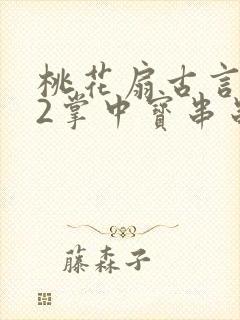 桃花扇古言
2掌中寶串
藤森子